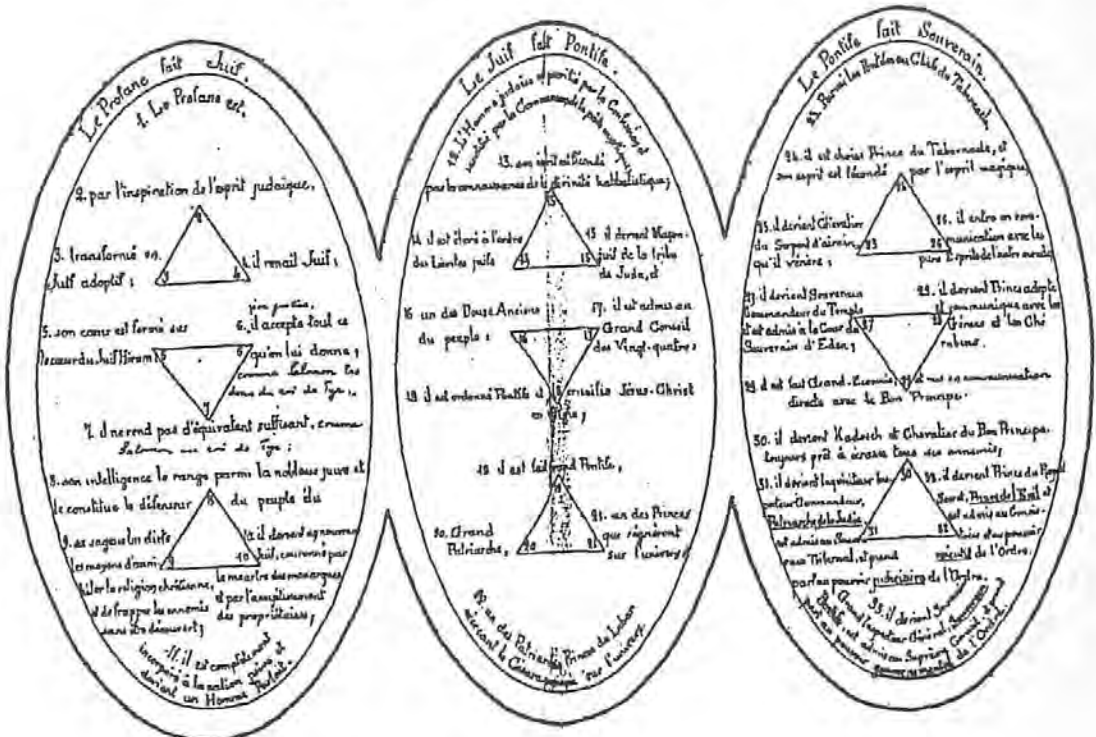 Le Profane fait Juif.
1. Le Profane est.
2. par l'inspiration de l'esprit judaïque,
2
3. transformé en
Juif adoptif;
3
4
4. il renaît Juif;
5. son cœur est formé sur
le cœur du Juif Hiram
5
6
6. il accepte tout ce
qu'on lui donne,
comme Salomon les
dons du roi de Tyr;
7
7. il ne rend pas d'équivalent suffisant, comme
Salomon au roi de Tyr;
8. son intelligence le range parmi la noblesse juive et
le constitue le défenseur
8
du peuple élu
9. sa
les moyens d'
la religion chrétienne,
et de frapper les ennemis
sans être découvert;
9
10
10. il devient
couronné par
le meurtre des monarques
et par l'
des propriétaires;
11. il est complètement
incorporé à la nation juive et
devient un Homme Parfait.
Le Juif fait Pontife.
12. L'Homme judaïsé et purifié par la
par la
13. son esprit est fécondé
par la connaissance de la divinité kabbalistique;
13
14. il est élevé à l'ordre
des Lévites juifs
14
15
15. il devient Maçon
juif de la tribu
de Juda, et
16. un des Douze Anciens
du peuple;
16
17
17. il est admis au
Grand Conseil
des Vingt-quatre;
18. il est ordonné Pontife et crucifie Jésus-Christ
en
19. il est fait Grand Pontife,
20. Grand
Patriarche,
20
21
21. un des Princes
qui règneront
sur l'univers;
22. un des Patriarches Princes du Liban
exerçant le sur l'univers.
Le Pontife fait Souverain.
23. Parmi les Chefs du Tabernacle,
24. il est choisi Prince du Tabernacle, et
son esprit est fécondé
24
par l'esprit magique;
25. il devient Chevalier
du Serpent d'airain,
qu'il vénère;
26. il entre en com-
munication avec les
purs Esprits de l'autre monde;
27. il devient Souverain
Commandeur du Temple
et est admis à la Cour du
Souverain d'Eden;
27
28
28. il devient Prince adepte
et communique avec les
Génies et les Ché
rubins.
29. il est fait Grand-Ecossais
et mis en communication
directe avec le Bon Principe.
30. il devient Kadosch et Chevalier du Bon Principe.
toujours prêt à écraser tous ses ennemis;
30
31. il devient Inquisiteur Ins-
pecteur Commandeur,
Patriarche de la
est admis au Souve-
rain Tribunal, et prend
part au pouvoir judiciaire de l'Ordre.
31
32
32. il devient Prince du Royal
Secret, et
est admis au Consis-
toire et au pouvoir
exécutif de l'Ordre.
33. il devient Souverain
Grand Inspecteur Général, Souverain
Pontife, est admis au Suprême Conseil, et prend
part au pouvoir gouvernemental de l'Ordre.